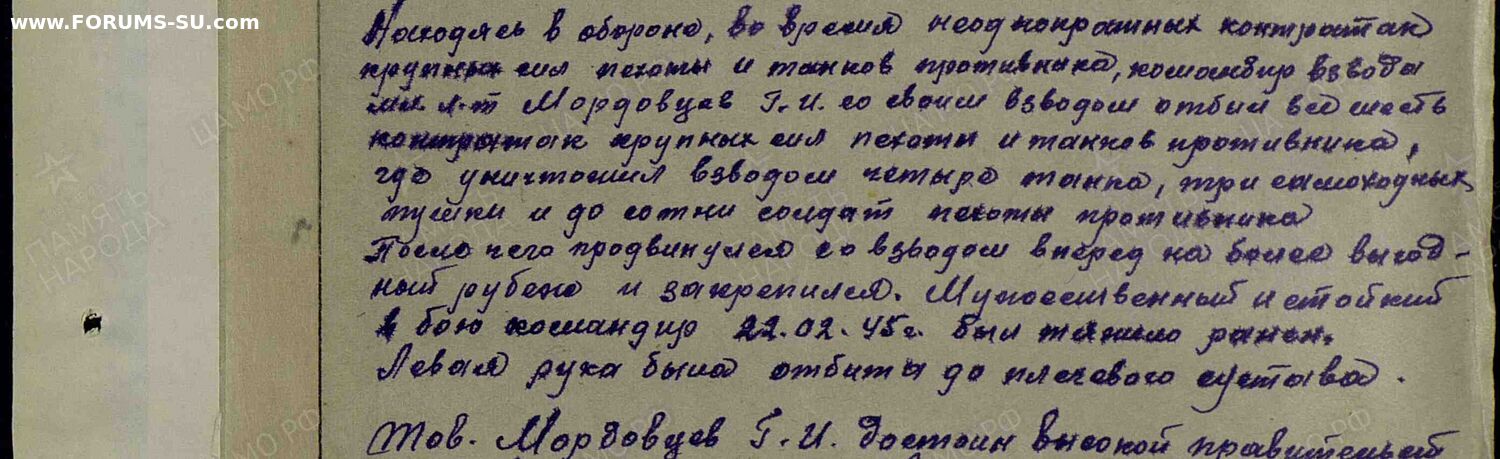 www.FORUMS-SU.com
Находясь в обороне, во время неоднократных контратак
крупных сил пехоты и танков противника, командир взвода
мл. л-т Мордовцев Г.И. со своим взводом отбил все шесть
контратак крупных сил пехоты и танков противника,
где уничтожил взводом четыре танка, три самоходных
пушки и до сотни солдат пехоты противника
После чего продвинулся со взводом вперед на более выгод-
ный рубеж и закрепился. Мужественный и стойкий
в бою командир 22.02.45г. был тяжело ранен.
Левая рука была отбита до плечевого сустава.
Тов. Мордовцев Г.И. достоин высокой правительст
ПАМЯТЬ
НАРОДА
ЦА МО РФ